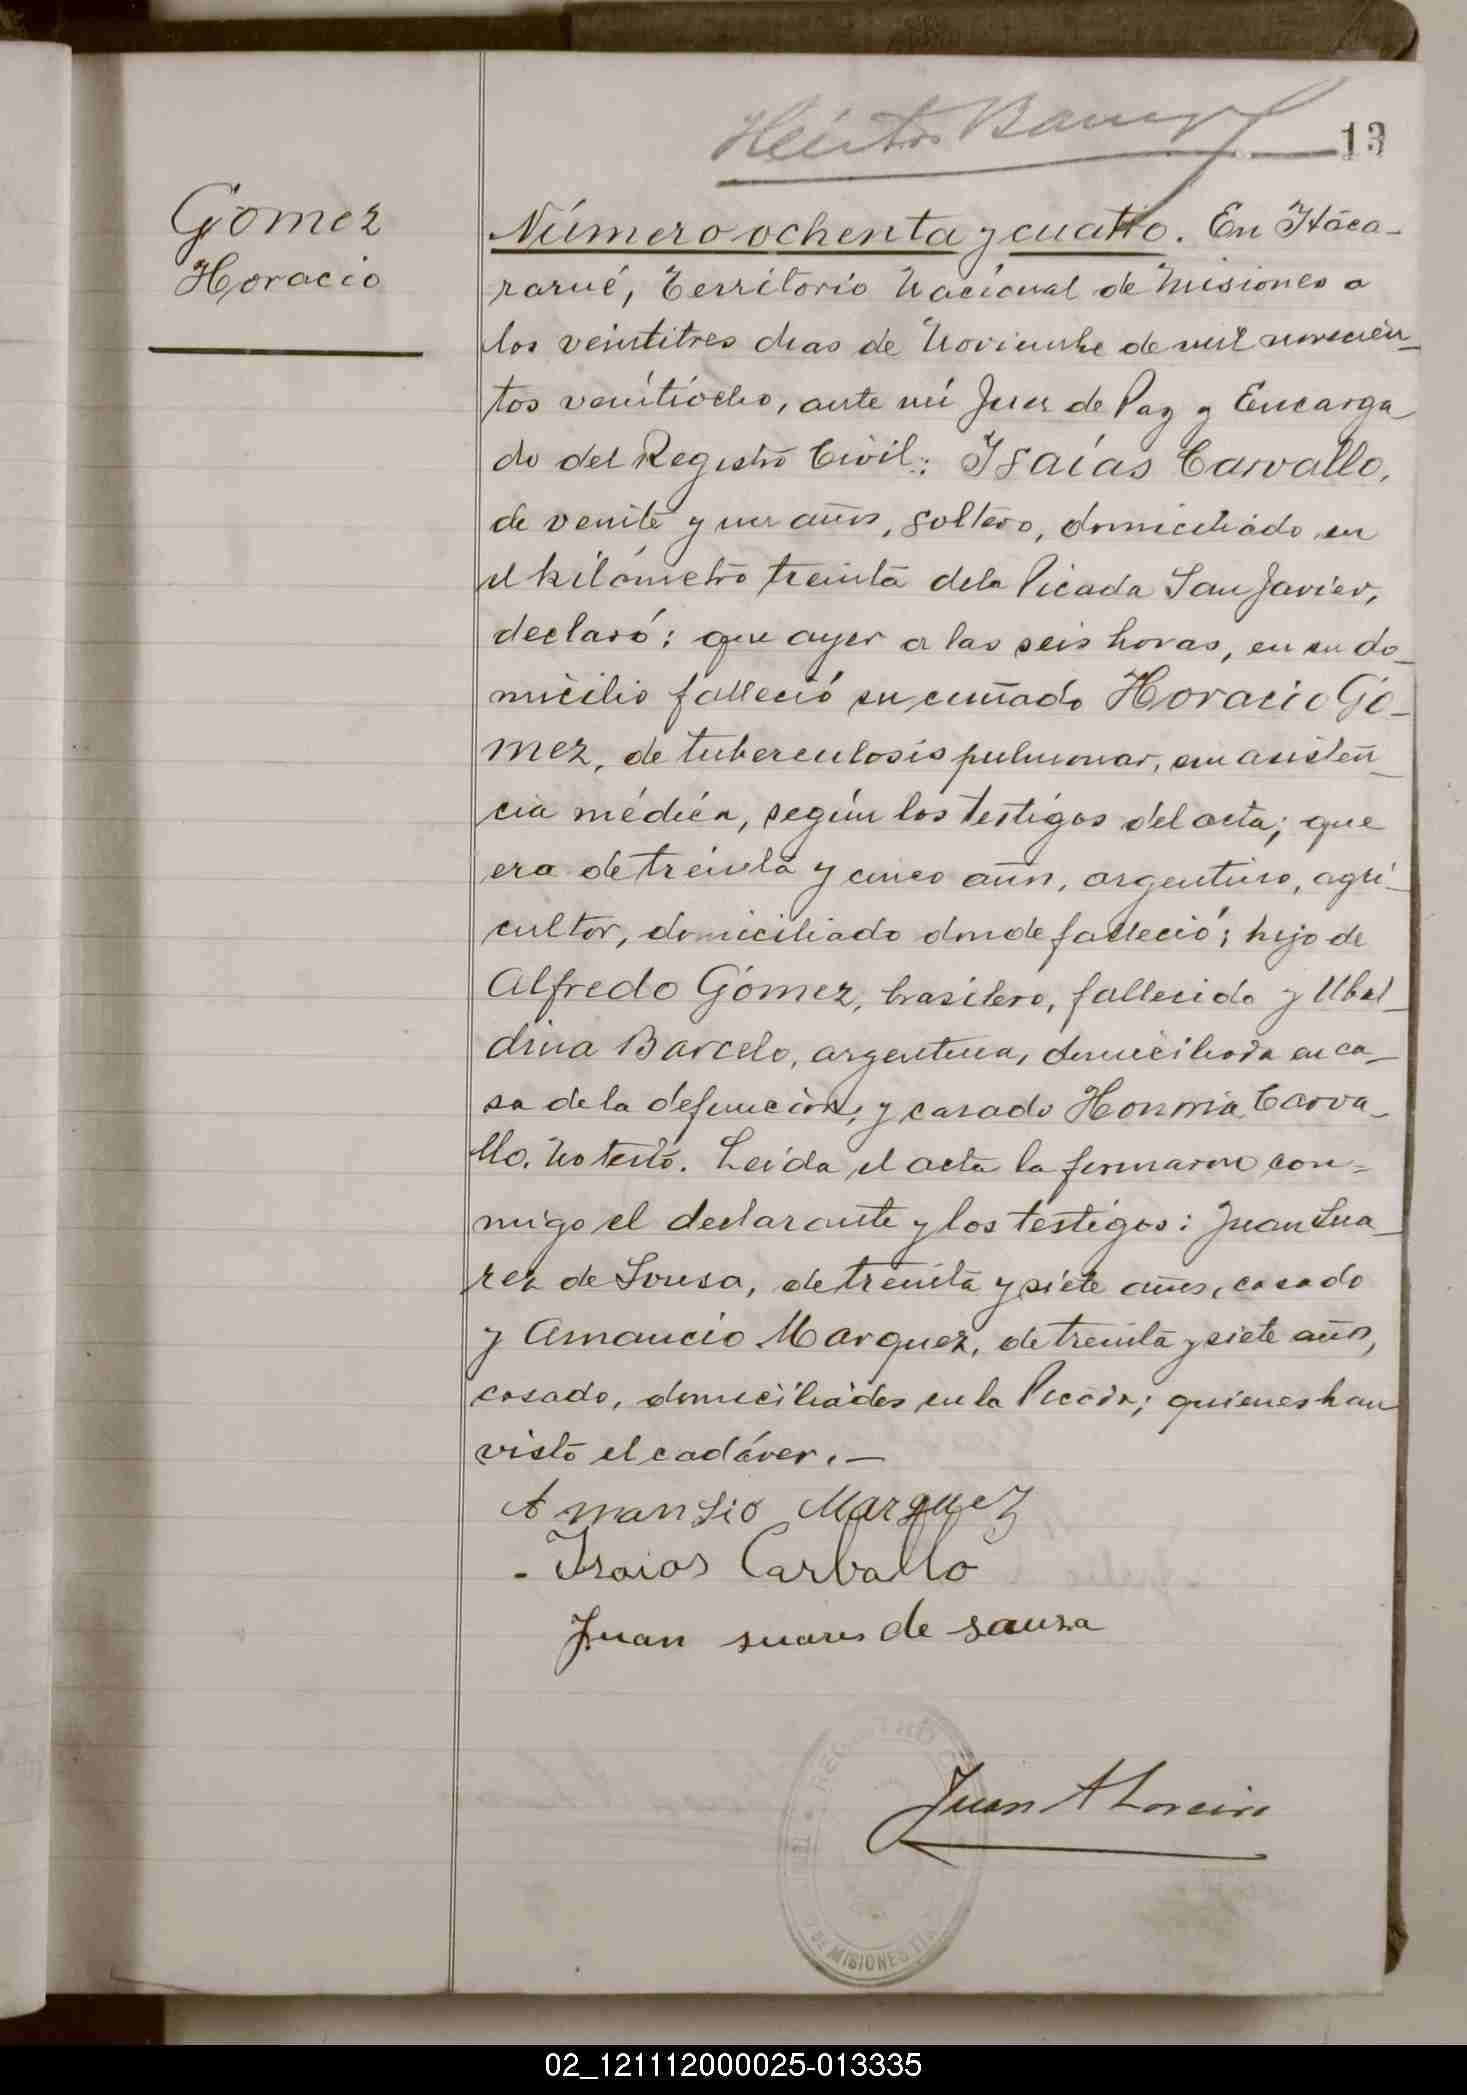 Héctor
13
Gomez
Horacio
Número ochenta y cuatro. En Itaca-
rarué, Territorio Nacional de Misiones a
los veintitres dias de Noviembre de mil novecien-
tos veintiocho, ante mí Juez de Paz y Encarga
do del Registro Civil: Isaías Carvallo,
de veinte y un años, soltero, domiciliado en
el kilómetro treinta de la Picada San Javier,
declaró: que ayer a las seis horas, en su do-
micilio falleció su cuñado Horacio Gó-
mez, de tuberculosis pulmonar, sin asisten-
cia médica, según los testigos del acta; que
era de treinta y cinco años, argentino, agri-
cultor, domiciliado donde falleció; hijo de
Alfredo Gómez, brasilero, fallecido y Ubal-
dina Barcelo, argentina, domiciliada en ca-
sa de la defunción, y casado Honoria Carva-
llo. No testó. Leída el acta la firmaron con-
migo el declarante y los testigos: Juan Sua-
rez de Sousa, de treinta y siete años, casado
y Amancio Marquez, de treinta y siete años,
casado, domiciliados en la Picada; quienes han
visto el cadáver.—
Amansio Marquez
- Isaias Carballo
Juan suares de sauza
REGISTRO
DE MISIONES
Juan A
02_121112000025-013335